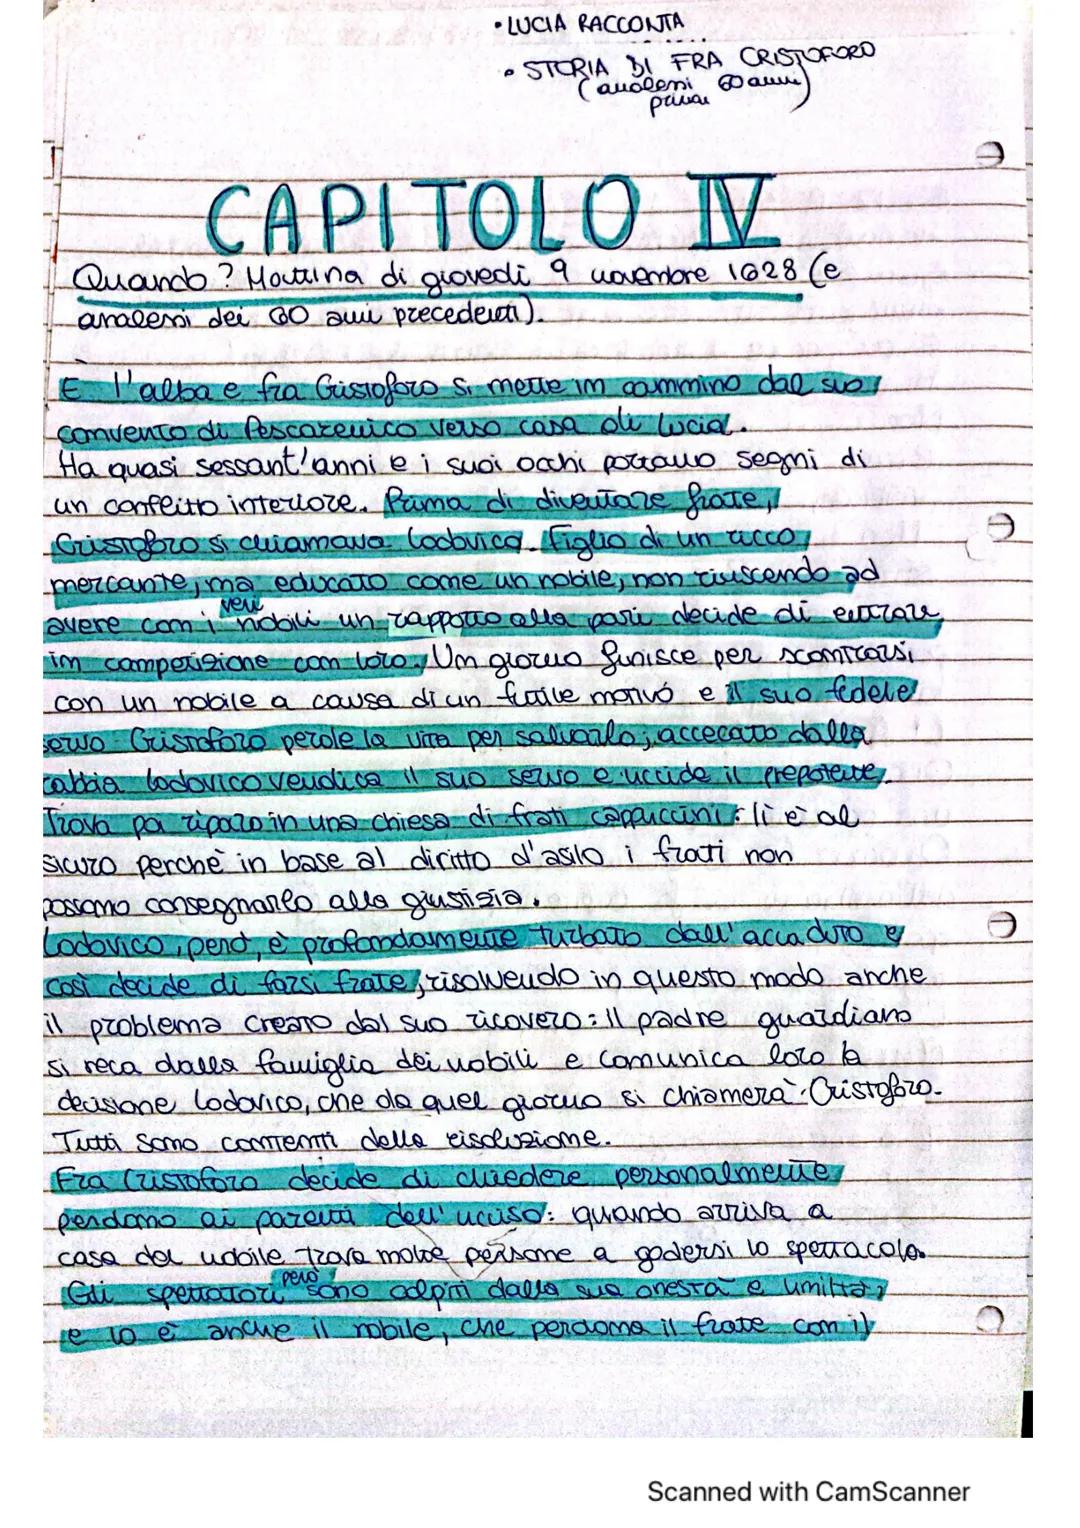 • LUCIA RACCONTA
• STORIA DI FRA CRISTOFORO
(analessi 60 anni
prima)
CAPITOLO IV
Quando? Mattina di giovedì 9 novembre 1628 (e
analessi dei 60 anni precedenti).
È l'alba e fra Cristoforo si mette in cammino dal suo
convento di Pescarenico verso casa di Lucia.
Ha quasi sessant'anni e i suoi occhi portano segni di
un conflitto interiore. Prima di diventare frate,
Cristoforo si chiamava Lodovico. Figlio di un ricco
mercante, ma educato come un nobile, non riuscendo ad
avere con i veri nobili un rapporto alla pari decide di entrare
in competizione con loro. Un giorno finisce per scontrarsi
con un nobile a causa di un futile motivo e il suo fedele
servo Cristoforo perde la vita per salvarlo; accecato dalla
rabbia Lodovico vendica il suo servo e uccide il prepotente.
Trova poi riparo in una chiesa di frati cappuccini: lì è al
sicuro perchè in base al diritto d'asilo i frati non
possono consegnarlo alla giustizia.
Lodovico, però, è profondamente turbato dall'accaduto e
così decide di farsi frate, risolvendo in questo modo anche
il problema creato dal suo ricovero: il padre guardiano
si reca dalla famiglia dei nobili e comunica loro la
decisione Lodovico, che da quel giorno si chiamerà Cristoforo.
Tutti sono contenti della risoluzione.
Fra Cristoforo decide di chiedere personalmente
perdono ai parenti dell'ucciso: quando arriva a
casa del nobile trova molte persone a godersi lo spettacolo.
Gli spettatori però sono colpiti dalla sua onestà e umiltà,
e lo è anche il nobile, che perdona il frate con il
Scanned with CamScanner